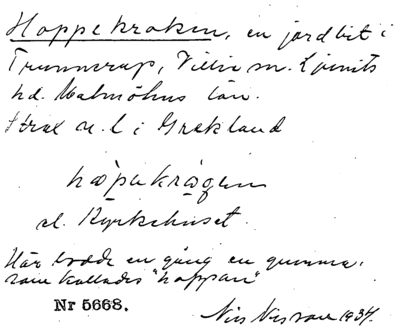 Hoppekroken, en jordbit i
Trunnerup, Villie sn. Ljunits
hd. Malmöhus län.
Strax n. l i Grekland
håpekrågen
el. Kyrkehuset.
Här bodde en gång en gumma,
som kallades "hoppan"
Nr 5668.
Nils 1934.